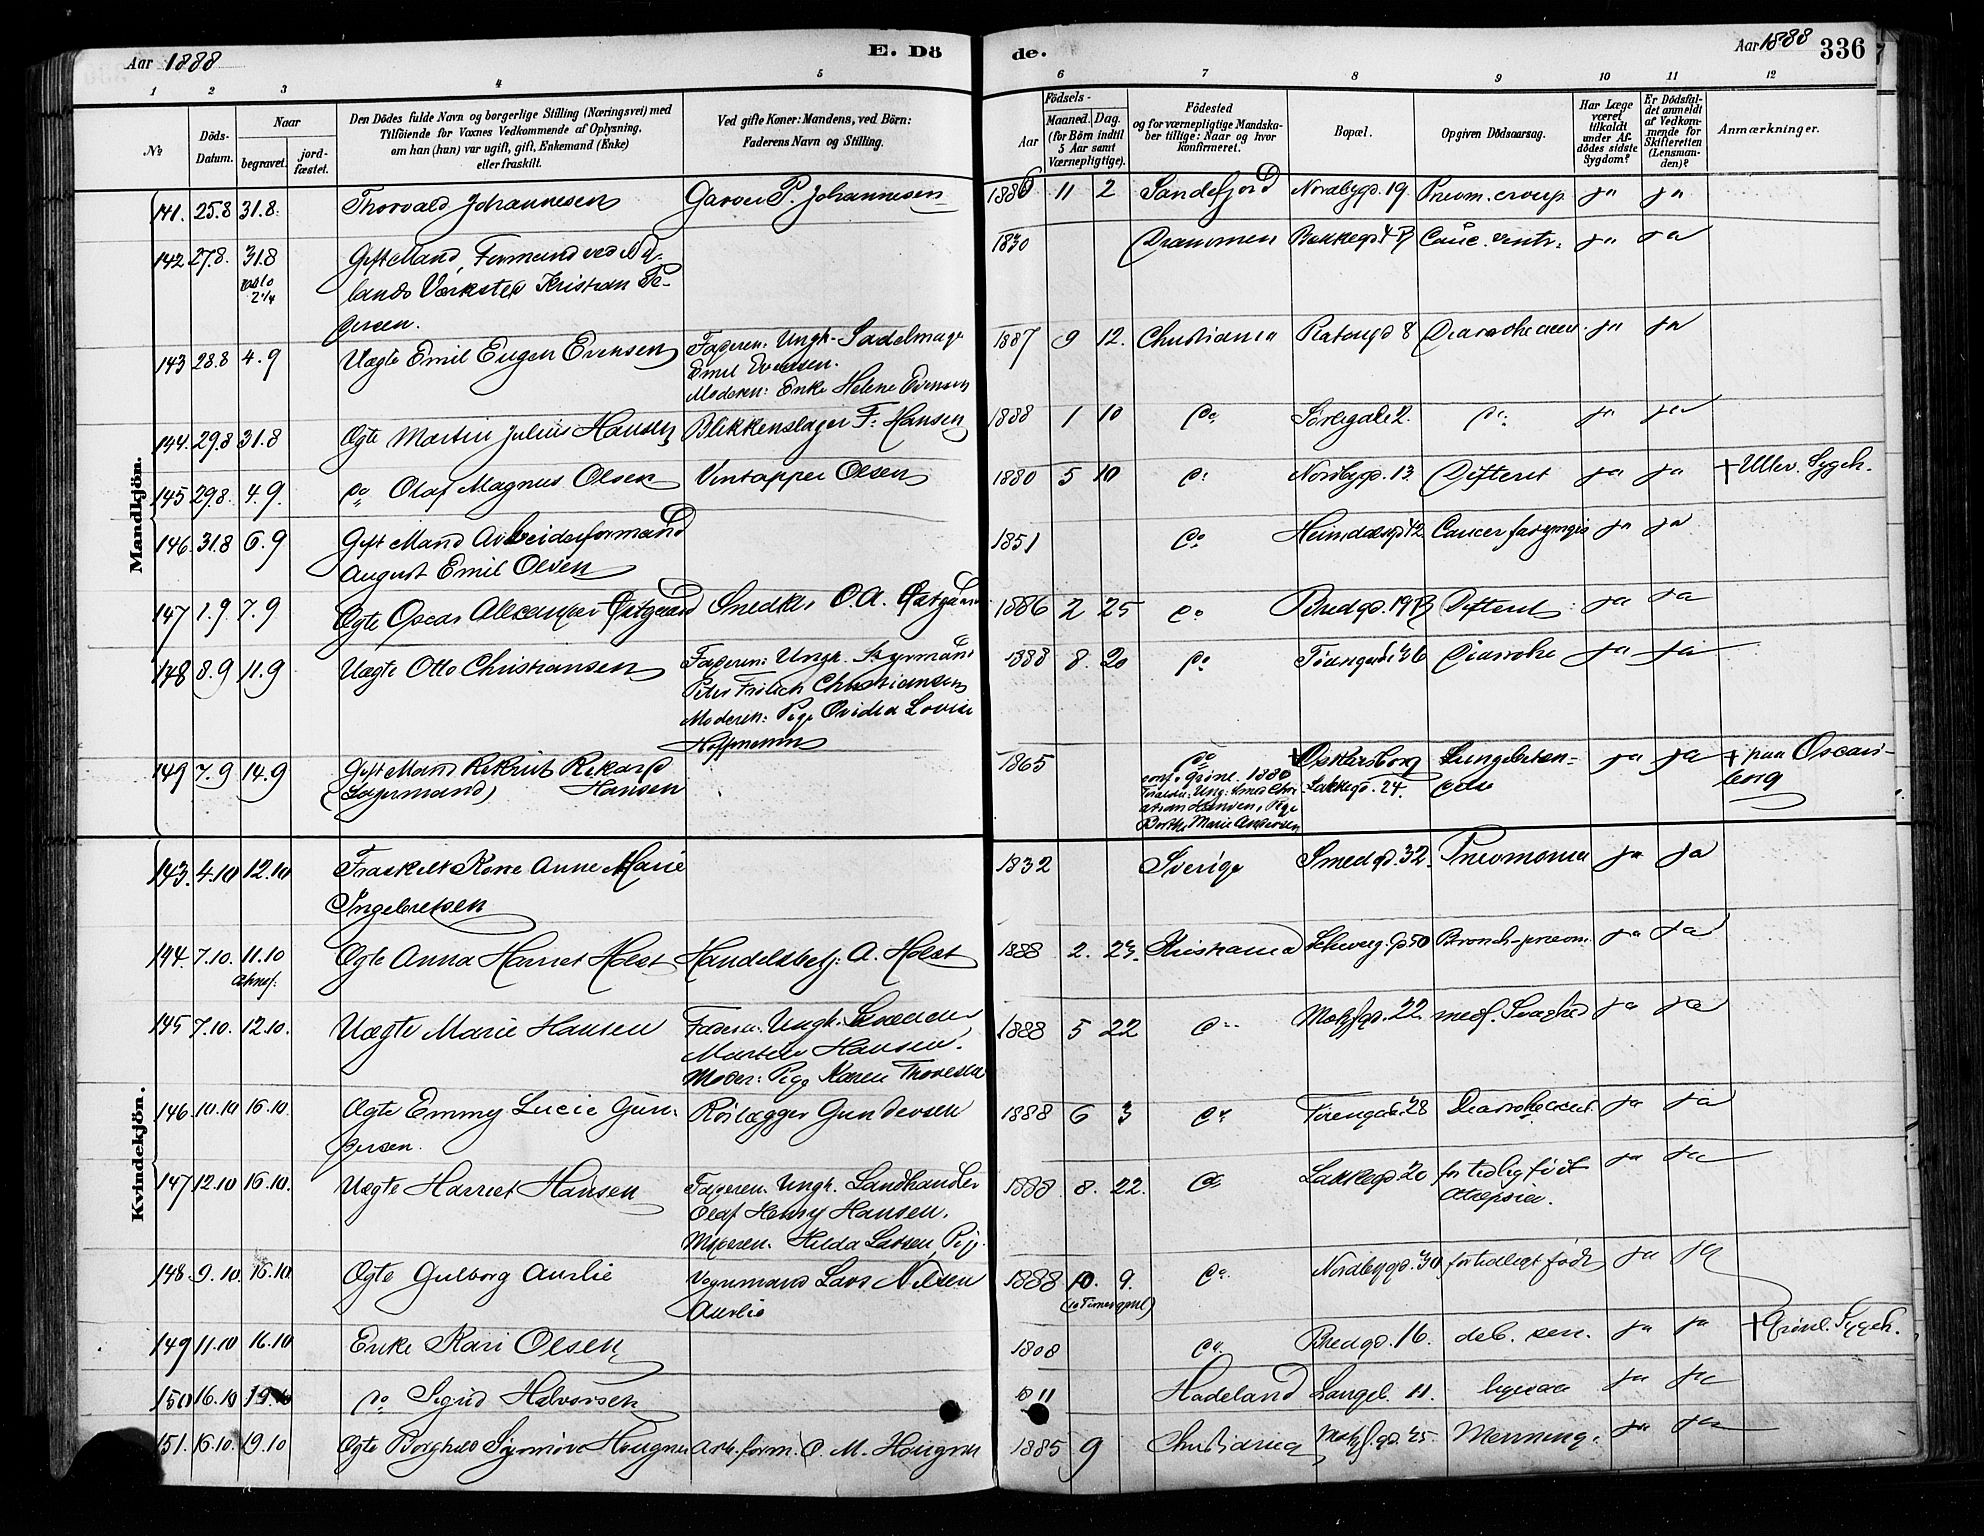 Aar 1888 E. Dö de. Aar 1888 336
1 2 3 4 5 6 7 8 9 10 11 12
№ Döds-Datum. Naar begravet. jord-fæstet.
Den Dödes fulde Navn og borgerlige Stilling (Næringsvei) med
Tilföiende for Voxnes Vedkommende af Oplysning,
om han (hun) var ugift, gift, Enkemand (Enke)
eller fraskilt.
Ved gifte Koner: Mandens, ved Börn:
Faderens Navn og Stilling.
Födsels-
Aar Maaned. Dag.
(for Börn indtil
5 Aar samt
Værnepligtige).
Födested
og for værnepligtige Mandska-
ber tillige: Naar og hvor
konfirmeret.
Bopæl.
Opgiven Dödsaarsag.
Har Læge
været
tilkaldt
under Af-
dödes sidste
Sygdom?
Er Dödsfal-
det anmeldt
af Vedkom-
mende for
Skifteretten
(Lensman-
den)?
Anmærkninger.
Mandkjön.
141. 25.8 31.8. Thorvald Johannesen Garver P. Johannesen 1886 11 2 Sandefjord Nordbygd. 19. Pneum. croup. ja ja
142 27.8. 31.8 Gift Mand, Formand ved Ny-
lands Værksted Kristian Pe-
dersen. 1830 Drammen Bakkegd 4 B Canc. ventr. ja ja
143 28.8 4.9 Uægte Emil Eugen Evensen Faderen: Ungk. Sadelmager
Emil Evensen.
Moderen: Enke Helene Evensen 1887 9 12. Christiania Platougd 8 Diarrohe acut. ja ja
144. 29.8 31.8 Ægte Martin Julius Hansen Blikkenslager F. Hansen 1888 1 10 do Sörligade 2. do ja ja
145 29.8. 4.9. do Olaf Magnus Olsen Vintapper Olsen 1880 5 10 do Nordbygd. 13. Difterit ja ja † Ullev. Sygeh.
146. 31.8 6.9 Gift Mand Arbeidsformand
August Emil Olsen 1851 do Heimdalsgd 42. Cancer faryngis ja ja
147 1.9. 7.9 Ægte Oscar Alexander Østgaard Snedker O. A. Østgaard 1886 2 25 do Bredgd. 19 B Difterit ja ja
148 8.9 11.9 Uægte Otto Christiansen Faderen: Ungk. Styrmand
Peter Frölich Christiansen
Moderen: Pige Ovidia Lovise
Hoffmann 1888 8. 20 do Töiengade 26 Diarrohe ja ja
149 7.9 14.9 Gift Mand Rekrut Rikard
(Lagermand) Hansen 1865 do
conf. Grönl. 1880
Forældre: Ung: Smed Chri
stian Hansen, Pige
Borthe Marie Andersen Oskarsborg
Lakkegd. 24. Lungebeten-
delse ja ja † paa Oscars-
borg
Kvindekjön.
143. 4.10 12.10 Fraskilt Kone Anne Marie
Ingebretsen 1832 Sverige Smedgd. 32. Pneumonia ja ja
144. 7.10. 11.10 Ægte Anna Harriet Holst Handelsbetj. A. Holst 1888 2. 23. Kristiania Schweig. gd 50 Bronch-pneum. ja ja
145 7.10. 12.10. Uægte Marie Hansen Faderen: Ungk. Svender
Martin Hansen.
Moder: Pige Karen Thoresen 1888 5 22 do Motzfgd. 22. medf. Svaghed ja ja
146. 10.10 16.10. Ægte Emmy Lucie Gun-
dersen. Rörlægger Gundersen 1888 6 3 do Töiengade 28 Diarrohe acut. ja ja
147 12.10 16.10. Uægte Harriet Hansen Faderen. Ungk. Landhandler
Olaf Henry Hansen.
Moderen. Hilda Larsen, Pige. 1888 8. 22. do Lakkegd. 20 for tidlig födt
atrepsia. ja ja
148. 9.10. 15.10. Ægte Gulborg Aurlie Vognmand Lars Nilsen
Aurlie 1888 10. 9. do Nordbygd. 30 for tidligt födt ja ja
(10 Timer gml.)
149 11.10 16.10 Enke Kari Olsen 1808 do Bredgd. 16. deb. sen. ja ja † Grönl. Sygeh.
150 16.10 19.10 do Sigrid Halvorsen 11 Hadeland Langel. 11. ligesaa ja ja
151. 15.10. 19.10 Ægte Borghild Synnöve Haugner Arb. form. O. M. Haugner 1885 9 Christiania Motzf. gd. 25. Menning. ja ja